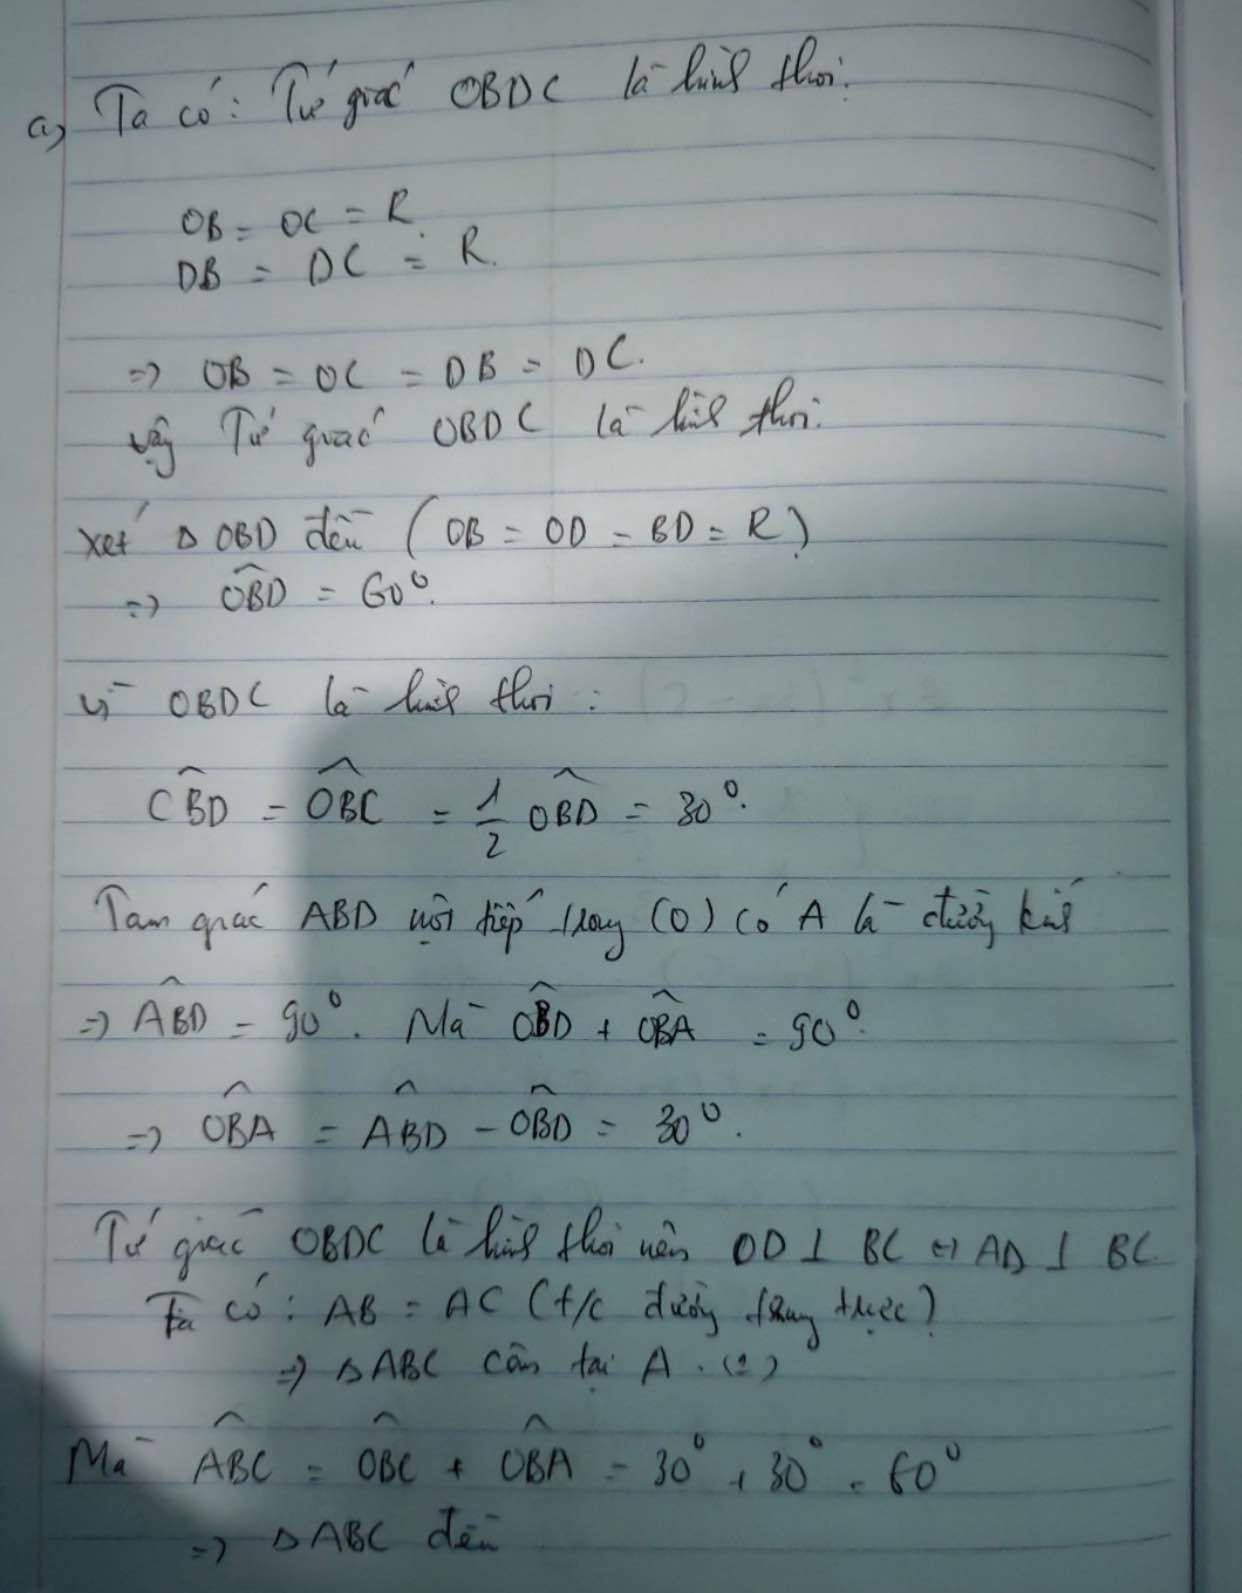 a) Ta có: Tứ giác OBDC là hình thoi.
OB = OC = R
DB = DC = R.
=> OB = OC = DB = DC.
vậy Tứ giác OBDC là hình thoi.
Xét Δ OBD đều (OB = OD = BD = R)
=> \widehat{OBD} = 60°.
Vì OBDC là hình thoi:
\widehat{CBD} = \widehat{OBC} = 1/2 \widehat{OBD} = 30°.
Tam giác ABD nội tiếp trong (O) có A là đường kính
=> \widehat{ABD} = 90°. Mà \widehat{OBD} + \widehat{OBA} = 90°.
=> \widehat{OBA} = \widehat{ABD} - \widehat{OBD} = 30°.
Tứ giác OBDC là hình thoi nên OD ⊥ BC <=> AD ⊥ BC.
Ta có: AB = AC (t/c đường trung trực)
=> Δ ABC cân tại A.
Mà \widehat{ABC} = \widehat{OBC} + \widehat{OBA} = 30° + 30° = 60°
=> Δ ABC đều